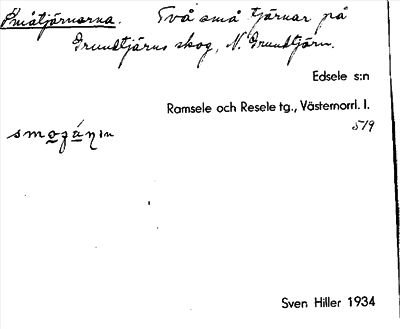 Småtjärnarna. Två små tjärnar på
Grundtjärns skog, N. Grundtjärn.
Edsele s:n
Ramsele och Resele tg., Västernorrl. l.
519